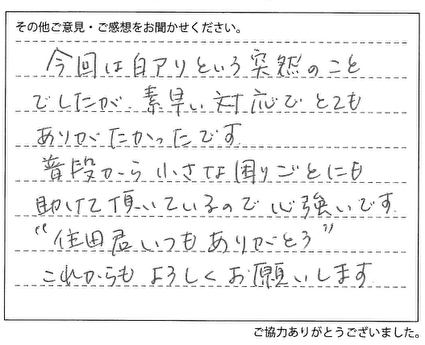 その他ご意見・ご感想をお聞かせください。
今回は白アリという突然のこと
でしたが、素早い対応でとても
ありがたかったです
普段から小さな困りごとにも
助けて頂いているので心強いです
“住田君いつもありがとう”
これからもよろしくお願いします
ご協力ありがとうございました。